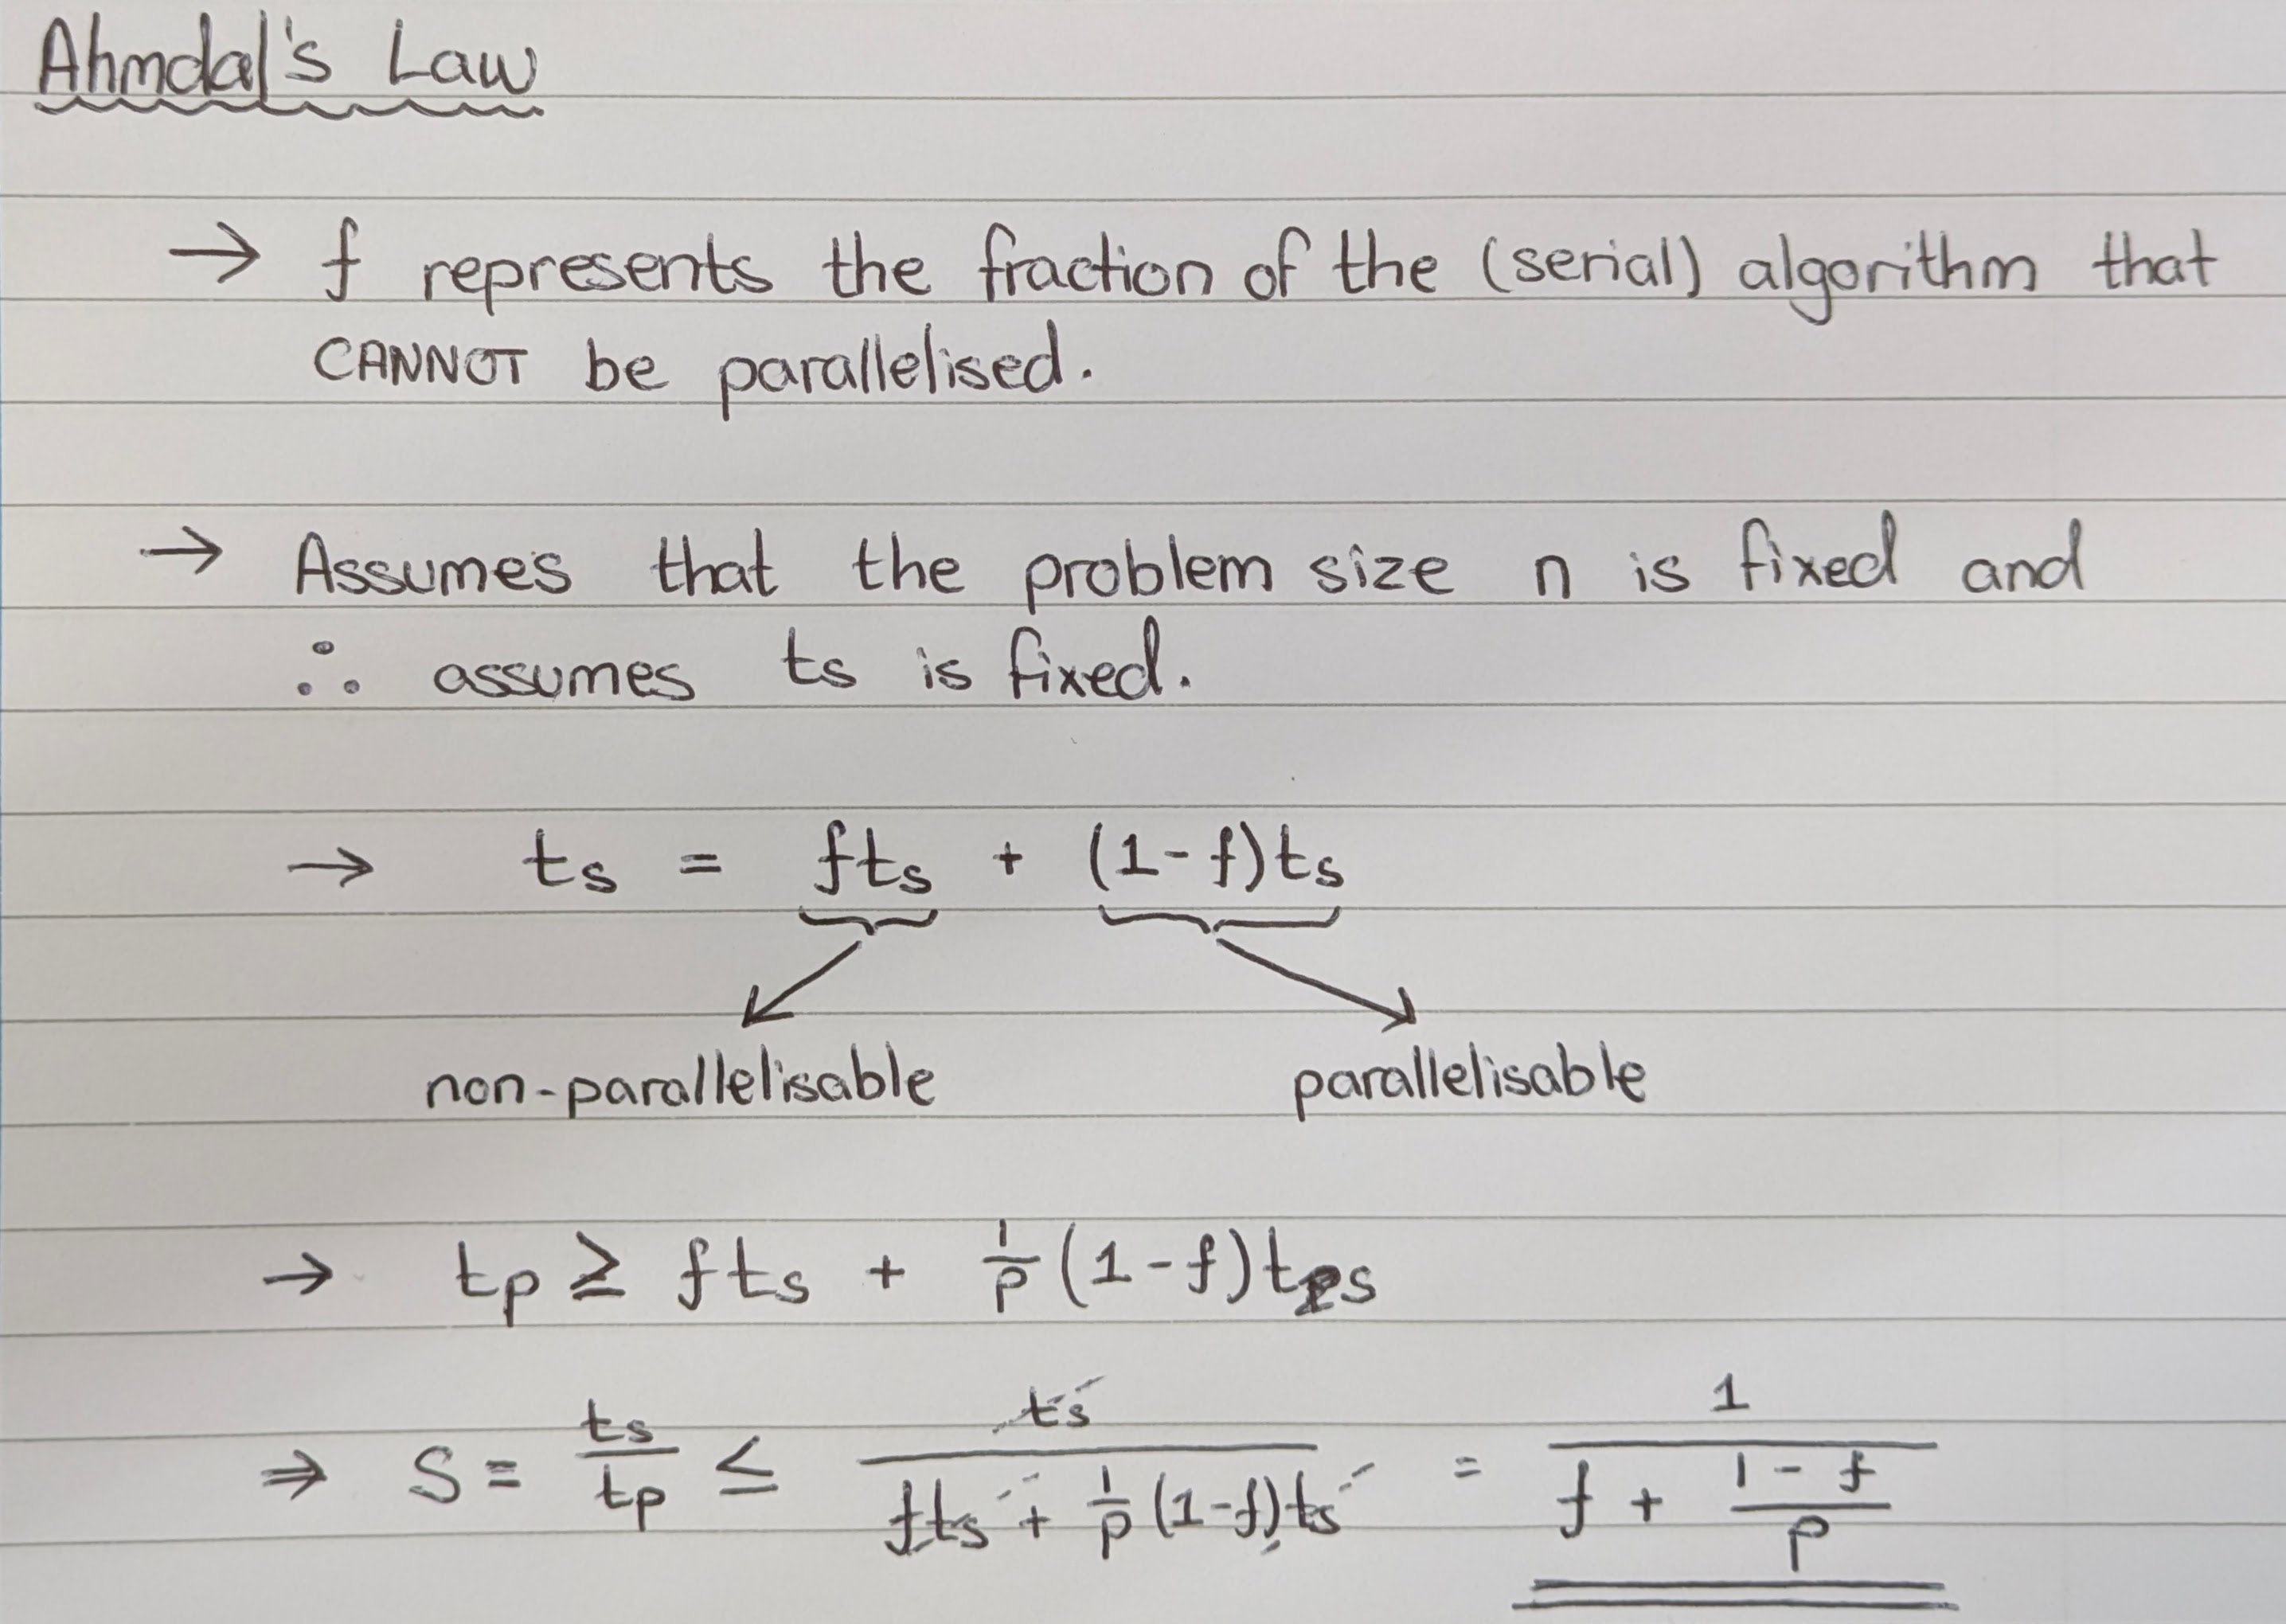 Ahmdal's Law
→ f represents the fraction of the (serial) algorithm that
CANNOT be parallelised.
→ Assumes that the problem size n is fixed and
∴ assumes ts is fixed.
→ ts = fts + (1-f)ts
non-parallelisable parallelisable
→ tp ≥ fts + 1/p (1-f)ts
⇒ S = ts/tp ≤ ts / (fts + 1/p (1-f)ts) = 1 / (f + (1-f)/p)